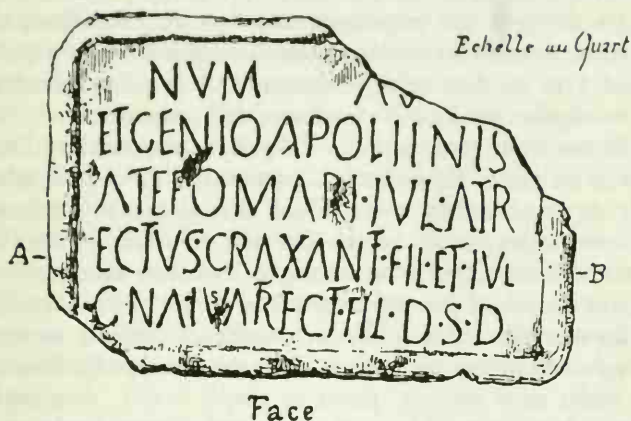 Echelle au Quart
NVM
ET GENIO APOLIINIS
ATEPOMARI·IVL·ATR
A-
ECTVS·CRAXANT·FIL·ET·IVL
-B
RECT·FIL·D·S·D
Face